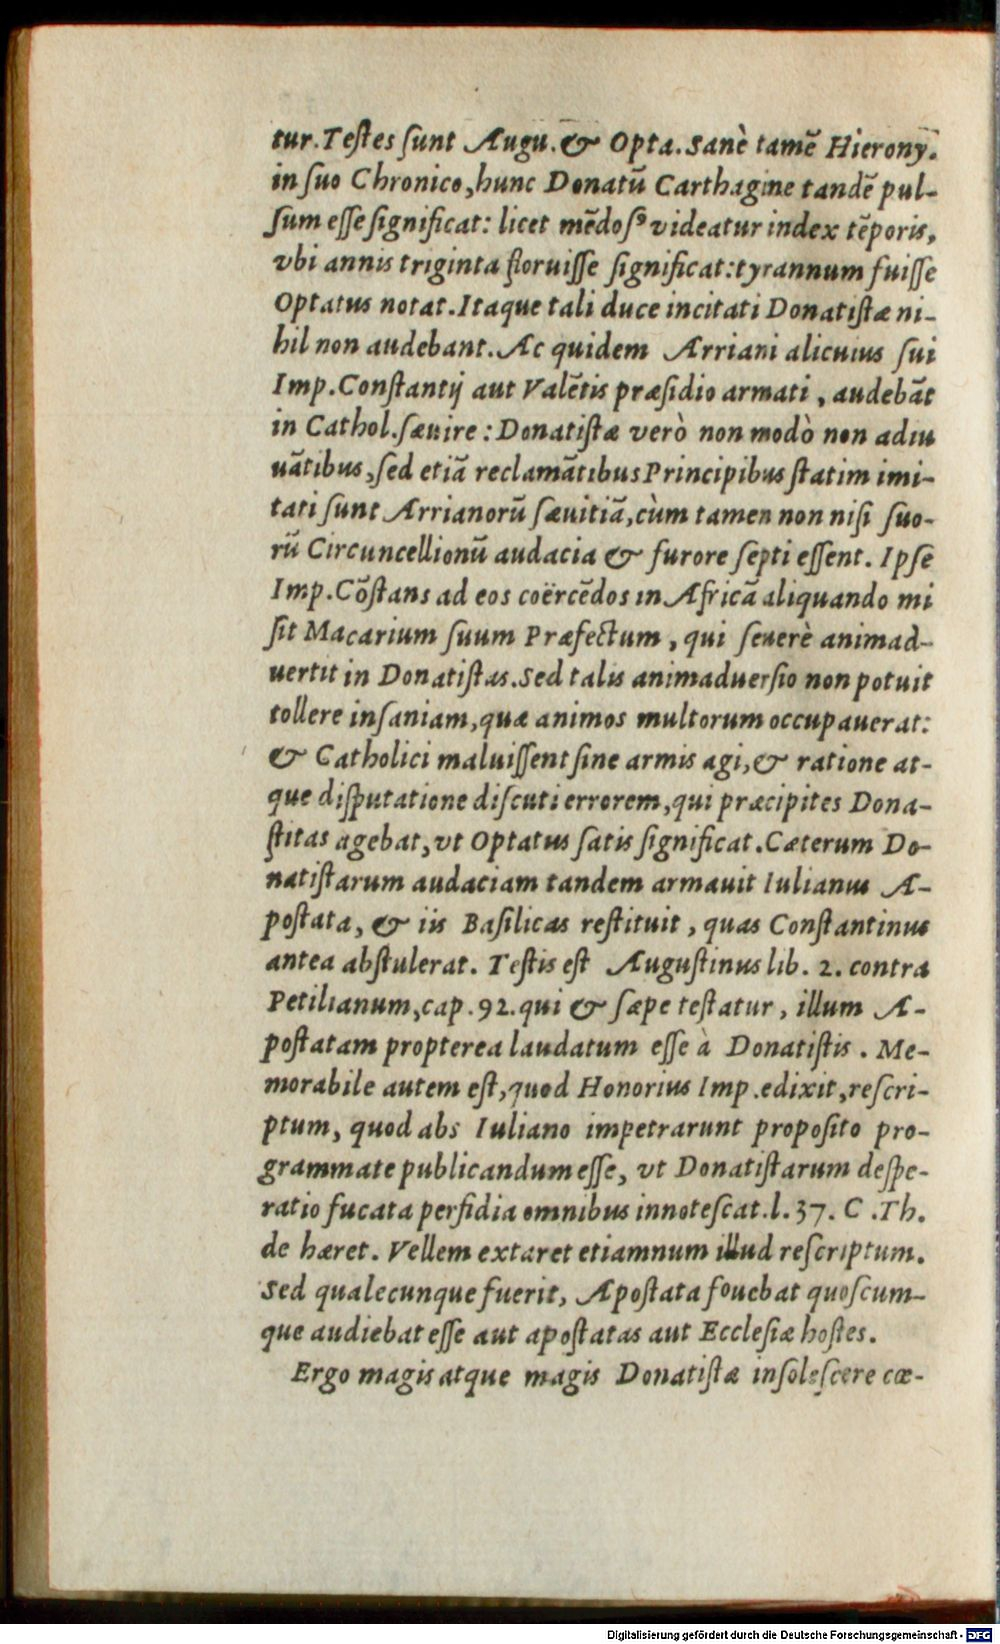 tur. Teſtes ſunt Augu. & Opta. Sanè tamē Hierony.
in ſuo Chronico, hunc Donatū Carthagine tandē pul-
ſum eſſe ſignificat: licet mēdoſꝰ videatur index tēporis,
vbi annis triginta floruiſſe ſignificat: tyrannum fuiſſe
Optatus notat. Itaque tali duce incitati Donatiſtæ ni-
hil non audebant. Ac quidem Arriani alicuius ſui
Imp. Conſtantij aut Valētis præſidio armati, audebāt
in Cathol. ſæuire: Donatiſtæ verò non modò non adiu
uātibus, ſed etiā reclamātibus Principibus ſtatim imi-
tati ſunt Arrianorū ſæuitiā, cùm tamen non niſi ſuo-
rū Circuncellionū audacia & furore ſepti eſſent. Ipſe
Imp. Cōſtans ad eos coërcēdos in Africā aliquando mi
ſit Macarium ſuum Præfectum, qui ſeuerè animad-
uertit in Donatiſtas. Sed talis animaduerſio non potuit
tollere inſaniam, quæ animos multorum occupauerat:
& Catholici maluiſſent ſine armis agi, & ratione at-
que diſputatione diſcuti errorem, qui præcipites Dona-
ſtitas agebat, vt Optatus ſatis ſignificat. Cæterum Do-
natiſtarum audaciam tandem armauit Iulianus A-
poſtata, & iis Baſilicas reſtituit, quas Conſtantinus
antea abſtulerat. Teſtis eſt Auguſtinus lib. 2. contra
Petilianum, cap. 92. qui & ſæpe teſtatur, illum A-
poſtatam propterea laudatum eſſe à Donatiſtis. Me-
morabile autem eſt, quod Honorius Imp. edixit, reſcri-
ptum, quod abs Iuliano impetrarunt propoſito pro-
grammate publicandum eſſe, vt Donatiſtarum deſpe-
ratio fucata perfidia omnibus innoteſcat. l. 37. C. Th.
de hæret. Vellem extaret etiamnum illud reſcriptum.
Sed qualecunque fuerit, Apoſtata fouebat quoſcum-
que audiebat eſſe aut apoſtatas aut Eccleſiæ hoſtes.
Ergo magis atque magis Donatiſtæ inſoleſcere cœ-
Digitalisierung gefördert durch die Deutsche Forschungsgemeinschaft - DFG